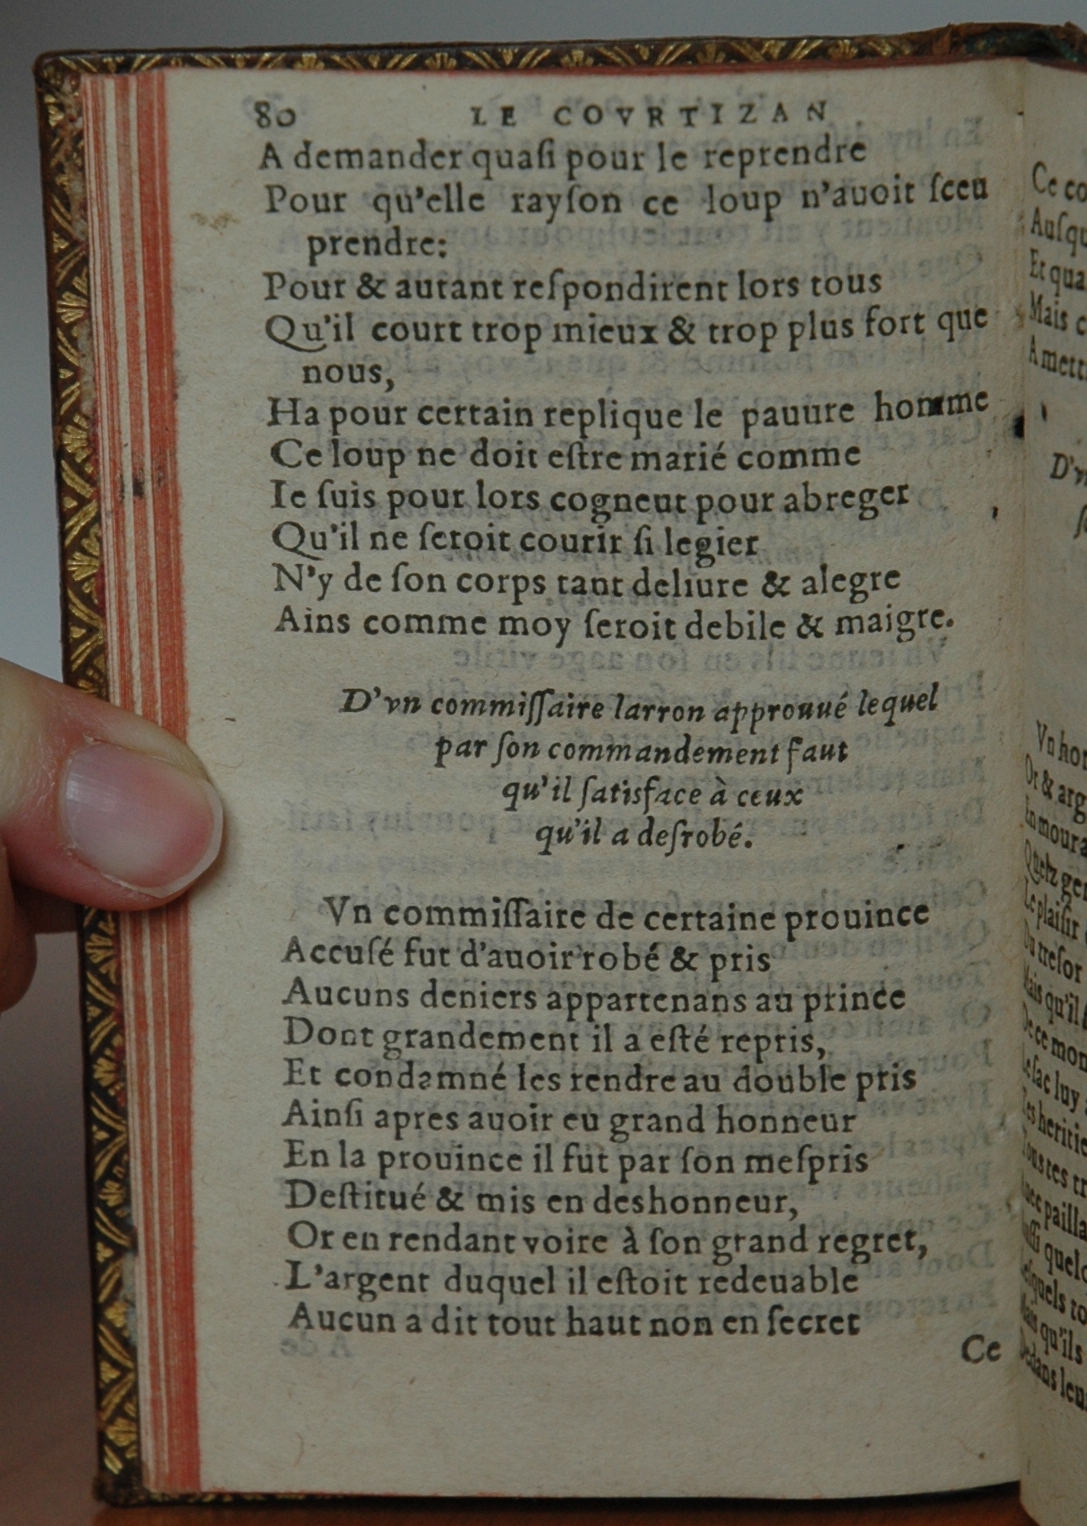 80 LE COVRTIZAN
A demander quaſi pour le reprendre
Pour qu'elle rayſon ce loup n'auoit ſceu
prendre:
Pour & autant reſpondirent lors tous
Qu'il court trop mieux & trop plus fort que
nous,
Ha pour certain replique le pauure homme
Ce loup ne doit eſtre marié comme
Ie ſuis pour lors cogneut pour abreger
Qu'il ne ſeroit courir ſi legier
N'y de ſon corps tant deliure & alegre
Ains comme moy ſeroit debile & maigre.
D'vn commiſſaire larron approuué lequel
par ſon commandement faut
qu'il ſatisface à ceux
qu'il a deſrobé.
Vn commiſſaire de certaine prouince
Accuſé fut d'auoir robé & pris
Aucuns deniers appartenans au prince
Dont grandement il a eſté repris,
Et condamné les rendre au double pris
Ainſi apres auoir eu grand honneur
En la prouince il fut par ſon meſpris
Deſtitué & mis en deshonneur,
Or en rendant voire à ſon grand regret,
L'argent duquel il eſtoit redeuable
Aucun a dit tout haut non en ſecret
Ce
Ce
Et
Mais
A
D'vn
Vn
Or & arg
En
Quelz
Le plaiſir
Du treſor
Mais qu'il
De ce mon
Le ſac luy